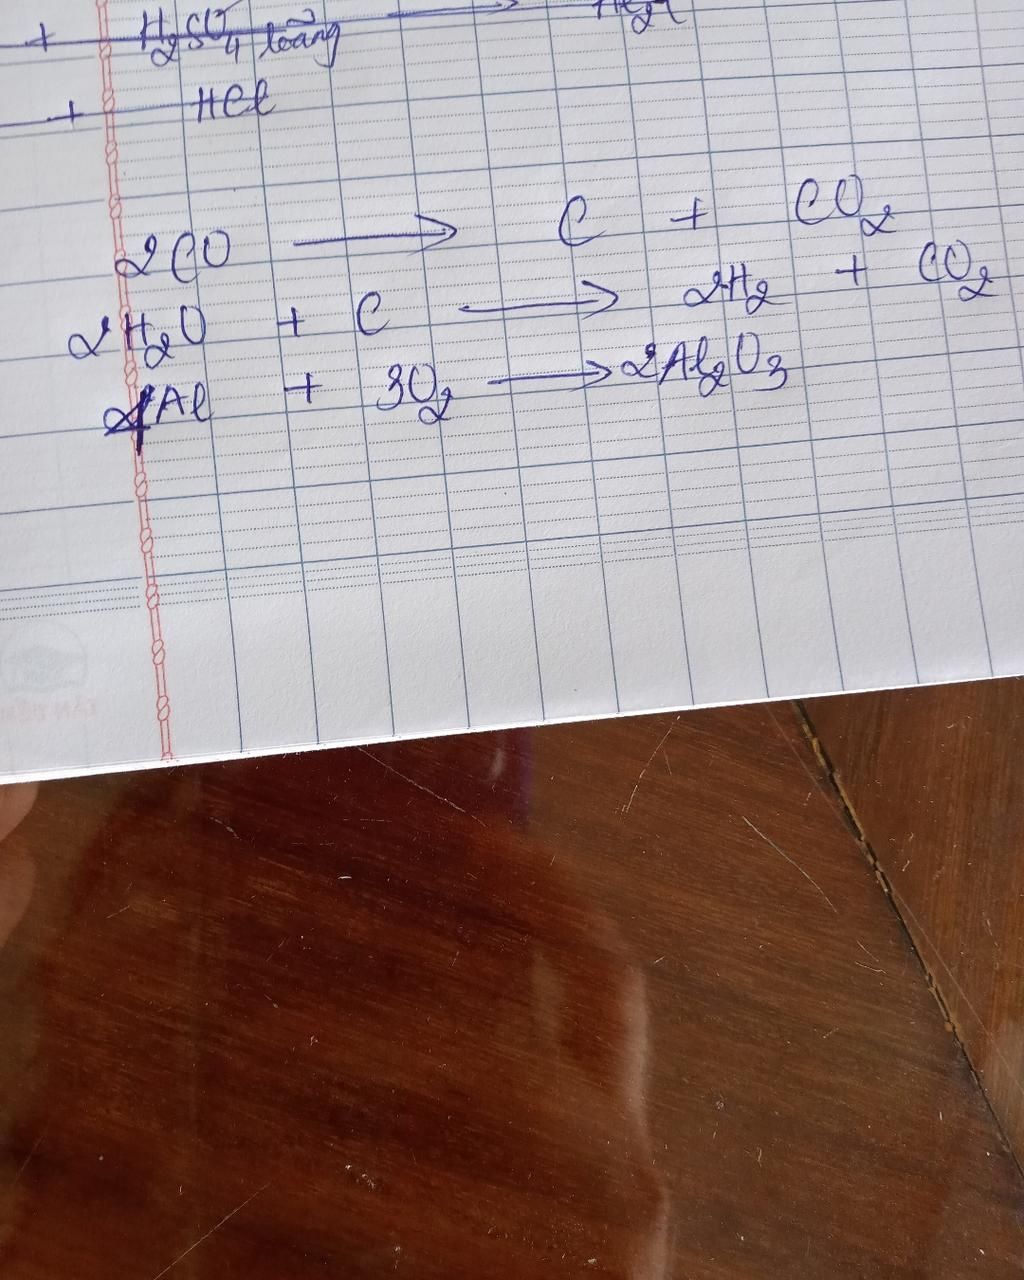 + H₂SO₄ loãng →
+ HCl
2CO → C + CO₂
2H₂O + C → 2H₂ + CO₂
4Al + 3O₂ → 2Al₂O₃